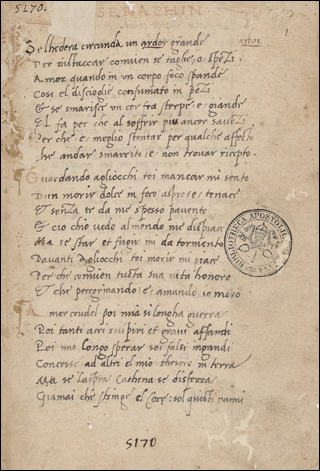 5170.
SERAPHIN
1
Se lhedera circunda un ardor grande arbor
Per distaccar convien se taglie, o spezi
Amor quando in un corpo foco spande
Cosi el discioglie consumato in pezi
Et se smarisce un cor tra sterpe e giande
El fa per che al soffrir piu ancor
Per che e meglio stentar per qualche affetto
che andar smarrito e non trovar ricepto.
Guardando agliocchi toi mancar mi sento
Dun morir dolce in foco aspro e tenace
Et senza te da me spesso pavento
Et cio cho vedo al mondo me dispiace
Ma se star et fugir mi da tormento
Davanti agliocchi toi morir mi piace
Per che convien tutta sua vita honoro
Et che per e amando, io moro
Amor crudel poi mia si longha guerra
Poi tanti acri suspiri et gravi affanni
Poi uno longo sperar soi falsi ingandi
Concesse ad altri el mio thesoro in terra
Ma se laspra Cathena se disferra
Giamai che stringe el Core: sol
BIBLIOTHECA APOSTOLICA VATICANA
5170